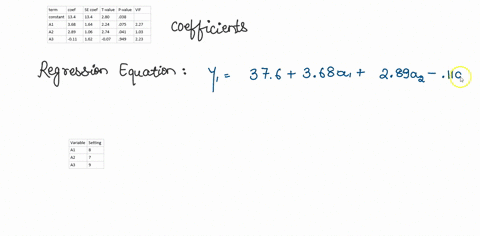 term coef SE coef T-value P-value VIF
constant 13.4 13.4 2.80 .038
A1 3.68 1.64 2.24 .075 2.27
A2 2.89 1.06 2.74 .041 1.03
A3 -0.11 1.62 -0.07 .949 2.23
coefficients
Regression Equation: y₁ = 37.6 + 3.68a₁ + 2.89a₂ - .11a
Variable Setting
A1 8
A2 7
A3 9